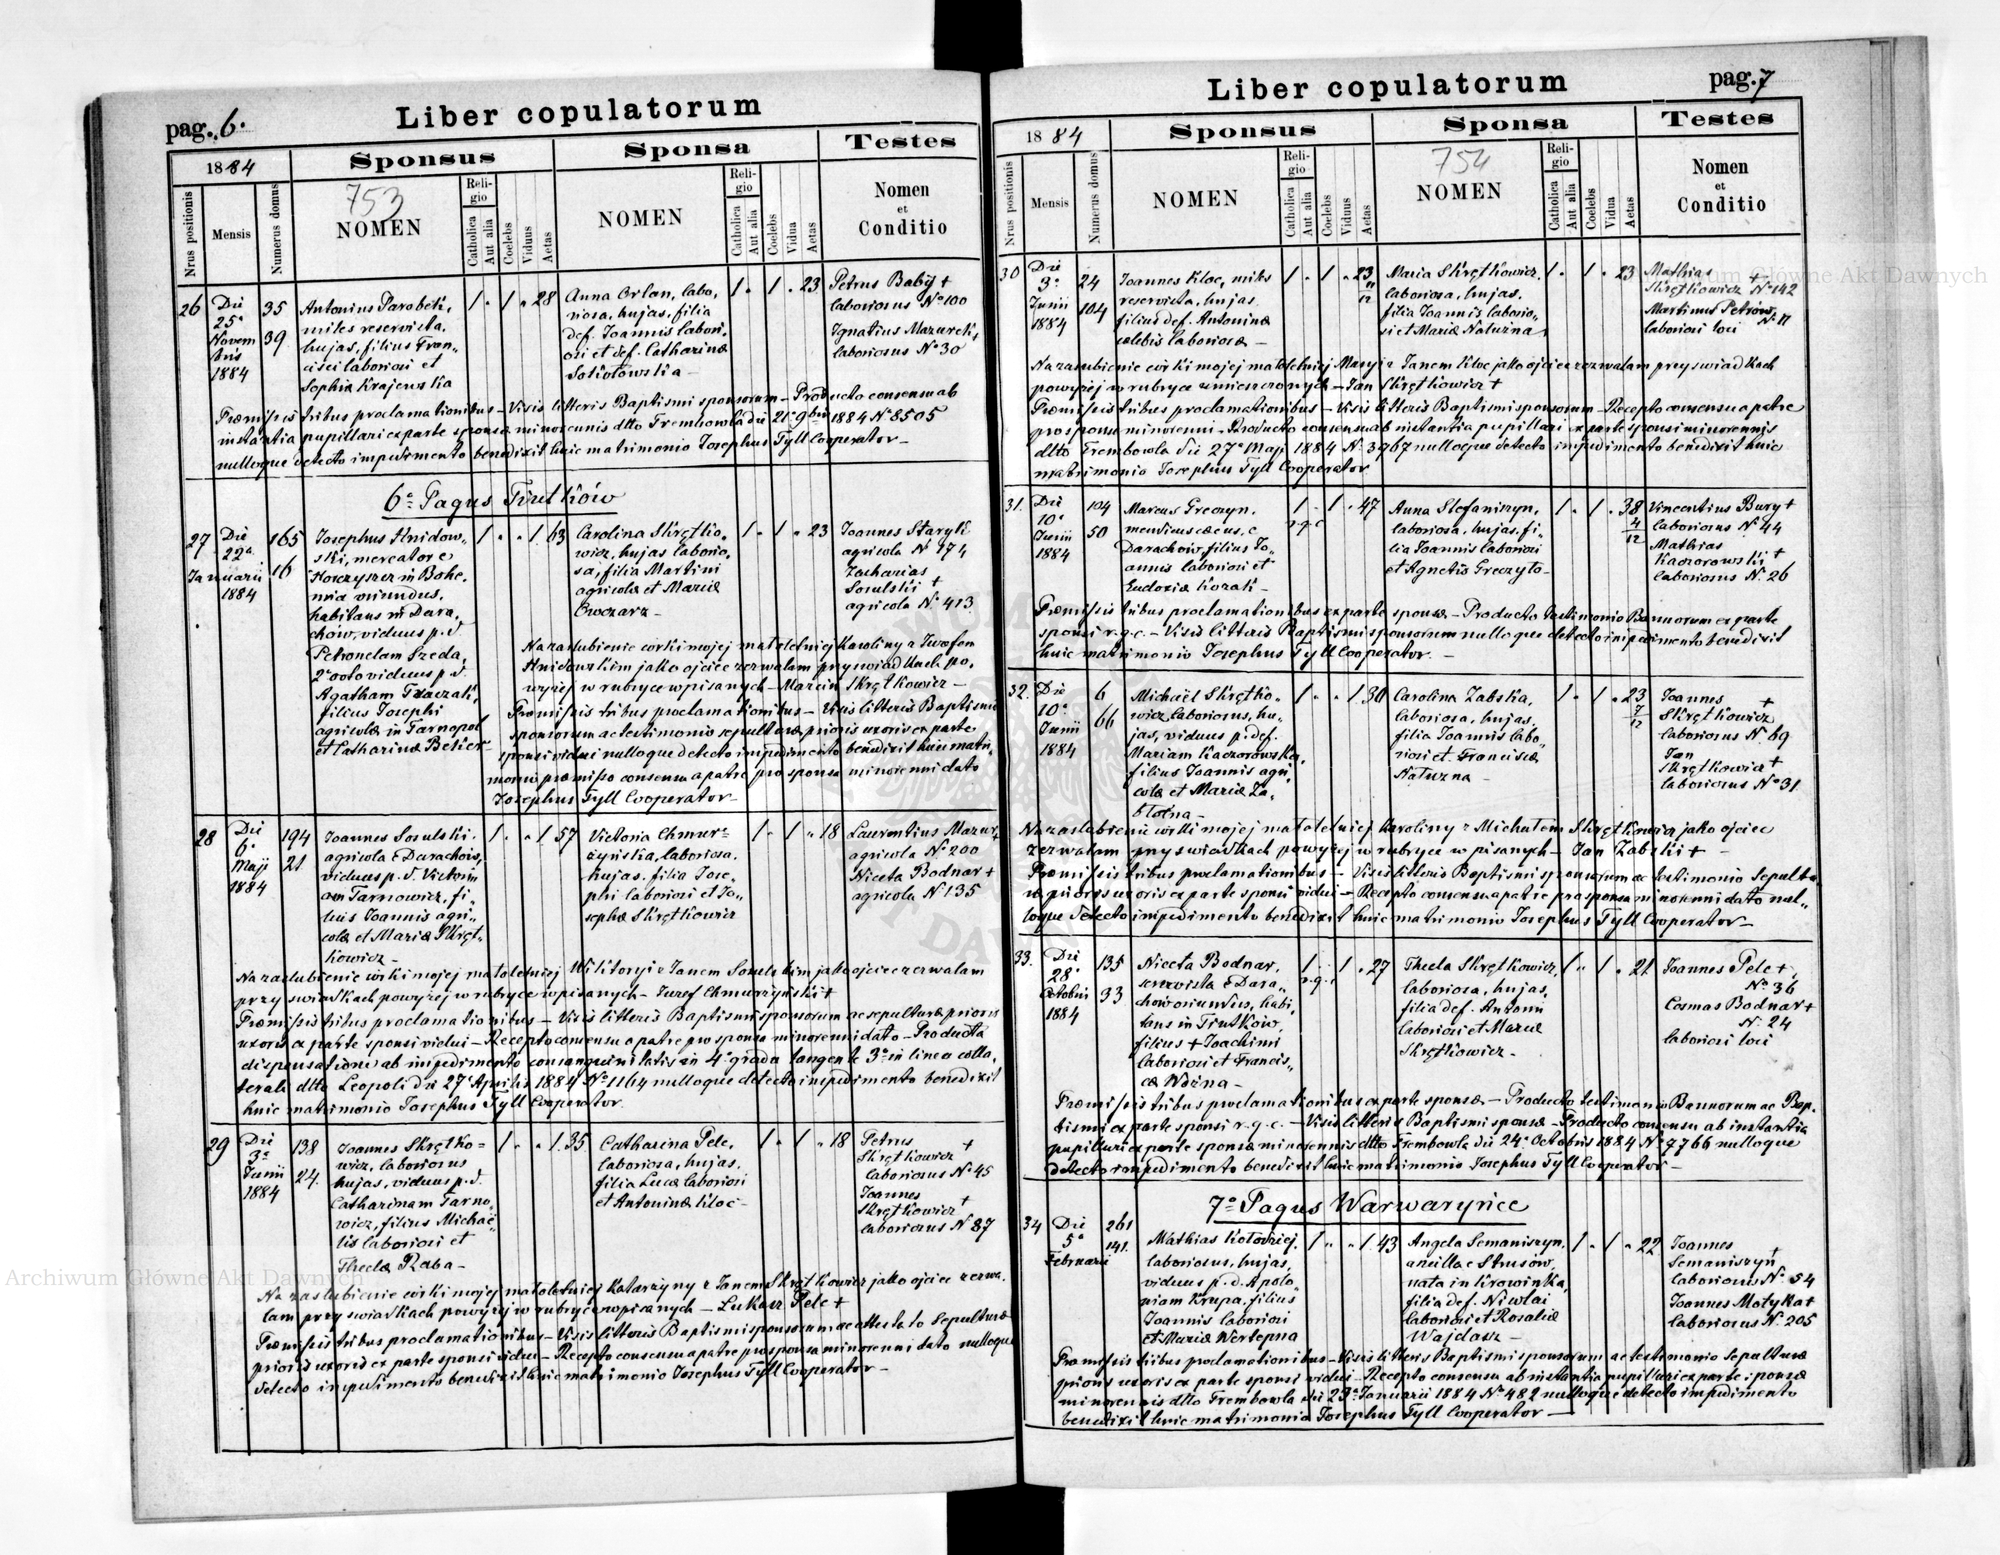 pag. 6.
Liber copulatorum
1884
Sponsus
Sponsa
Testes
Nrus positionis
Mensis
Numerus domus
753
NOMEN
Religio
Catholica
Aut alia
Coelebs
Viduus
Aetas
NOMEN
Religio
Catholica
Aut alia
Coelebs
Vidua
Aetas
Nomen
et
Conditio
26
Die
25a
Novem
bris
1884
35
39
Antonius Parobek,
miles reservista,
hujas, filius Fran„
cisci laboriosi et
Sophia Krajewska
1 „ 1 „ 28
Anna Orlan, labo„
riosa, hujas, filia
def. Joannis labori„
osi et def. Catharinæ
Sokołowska –
1 „ 1 „ 23
Petrus Baby +
laboriosus No 100
Ignatius Mazurek,
laboriosus No 30
Præmissis tribus proclamationibus – Visis litteris Baptismi sponsorum – Producto consensu ab
instantia pupillari ex parte sponsæ minorennis dtto Trembowla die 21a 9bris 1884 No 8505
nulloque detecto impedimento benedixit huic matrimonio Josephus Tyll Cooperator –
6o Pagus Tiutków
27
Die
22a
Januarii
1884
165
16
Josephus Hnidow„
ski, mercator e
in Bohe„
mia oriundus,
habitans in Dara„
chów, viduus p. d.
Petronelam Szeda,
2o voto viduus p. d.
Agatham Tkaczak,
filius Josephi
agricolæ in Tarnopol
et Catharinæ Bekier –
1 „ „ 1 63
Carolina Skrętko„
wicz, hujas laborio„
sa, filia Martini
agricolæ et Mariæ
Owczarz –
1 „ 1 „ 23
Joannes Staryk
agricola No 174
Zacharias
Sosulski +
agricola No 413
Na zaślubienie córki mojej małoletniej Karoliny z Józefem
Hnidowskim jako ojciec zezwalam przy świadkach po„
wyżej w rubryce wpisanych – Marcin Skrętkowicz –
Præmissis tribus proclamationibus – Visis litteris Baptismi
sponsorum ac testimonio sepulturæ prioris uxoris ex parte
sponsi vidui nulloque detecto impedimento benedixit huic matri„
monio præmisso consensu a patre pro sponsa minorenni dato
Josephus Tyll Cooperator –
28
Die
6a
Maji
1884
194
21
Joannes Sosulski,
agricola e Darachów,
viduus p. d. Victori
am Tarnowicz, fi„
lius Joannis agri„
colæ et Mariæ Skręt„
kowicz –
1 „ „ 1 57
Victoria Chmur=
zyńska, laboriosa,
hujas, filia Jose„
phi laboriosi et Jo„
sephæ Skrętkowicz
1 „ 1 „ 18
Laurentius Mazur +
agricola No 200
Niceta Bodnar +
agricola No 135
Na zaślubienie córki mojej małoletniej Wiktoryi z Janem Sosulskim jako ojciec zezwalam
przy świadkach powyżej w rubryce wpisanych – Józef Chmurzyński +
Præmissis tribus proclamationibus – Visis litteris Baptismi sponsorum ac sepulturæ prioris
uxoris ex parte sponsi vidui – Recepto consensu a patre pro sponsa minorenni dato – Producta
dispensatione ab impedimento consanguinitatis in 4o gradu tangente 3um in linea colla„
terali dtto Leopoli die 27a Aprilis 1884 No 1164 nulloque detecto impedimento benedixit
huic matrimonio Josephus Tyll Cooperator.
29
Die
3a
Junii
1884
138
24.
Joannes Skrętko=
wicz, laboriosus
hujas, viduus p. d.
Catharinam Tarno„
wicz, filius Michaë„
lis laboriosi et
Theclæ Raba –
1 „ „ 1 35
Catharina Pelc,
laboriosa, hujas,
filia Lucæ laboriosi
et Antoninæ Kloc –
1 „ 1 „ 18
Petrus +
Skrętkowicz
laboriosus No 45
Joannes +
Skrętkowicz
laboriosus No 87
Na zaślubienie córki mojej małoletniej Katarzyny z Janem Skrętkowicz jako ojciec zezwa„
lam przy świadkach powyżej w rubryce wpisanych – Łukasz Pelc +
Præmissis tribus proclamationibus – Visis litteris Baptismi sponsorum ac attestato Sepulturæ
prioris uxoris ex parte sponsi vidui – Recepto consensu a patre pro sponsa minorenni dato nulloque
detecto impedimento benedixit huic matrimonio Josephus Tyll Cooperator –
pag. 7
Liber copulatorum
1884
Sponsus
Sponsa
Testes
Nrus positionis
Mensis
Numerus domus
NOMEN
Religio
Catholica
Aut alia
Coelebs
Viduus
Aetas
754
NOMEN
Religio
Catholica
Aut alia
Coelebs
Vidua
Aetas
Nomen
et
Conditio
30
Die
3a
Junii
1884
24
104
Joannes Kloc, miles
reservista, hujas,
filius def. Antoninæ
cælebis laboriosæ –
1 „ 1 „ 23 11/12
Maria Skrętkowicz,
laboriosa, hujas,
filia Joannis laborio„
si et Mariæ Naturzna
1 „ 1 „ 23
Mathias +
Skrętkowicz No 142
Martinus Petrów,
laboriosi loci No 17
Na zaślubienie córki mojej małoletniej Maryi z Janem Kloc jako ojciec zezwalam przy świadkach
powyżej w rubryce umieszczonych – Jan Skrętkowicz +
Præmissis tribus proclamationibus – Visis litteris Baptismi sponsorum – Recepto consensu a patre
pro sponsa minorenni – Producto consensu ab instantia pupillari ex parte sponsi minorennis
dtto Trembowla die 27a Maji 1884 No 3967 nulloque detecto impedimento benedixit huic
matrimonio Josephus Tyll Cooperator
31.
Die
10a
Junii
1884
104
50
Marcus Greczyn,
mendicus cæcus, e
Darachów, filius Jo„
annis laboriosi et
Eudoxiæ Kozak –
1 r.g.c „ 1 „ 47
Anna Stefaniszyn,
laboriosa, hujas, fi„
lia Joannis laboriosi
et Agnetis Greczyło –
1 „ 1 „ 38 4/12
Vincentius Bury +
laboriosus No 44
Mathias
Kaczorowski +
laboriosus No 26
Præmissis tribus proclamationibus ex parte sponsæ – Producto testimonio Bannorum ex parte
sponsi r.g.c. – Visis litteris Baptismi sponsorum nulloque detecto impedimento benedixit
huic matrimonio Josephus Tyll Cooperator. –
32.
Die
10a
Junii
1884
6
66
Michaël Skrętko„
wicz, laboriosus, hu„
jas, viduus p. def.
Mariam Kaczorowska,
filius Joannis agri„
colæ et Mariæ Za„
błotna –
1 „ „ 1 30
Carolina Zabska,
laboriosa, hujas,
filia Joannis labo„
riosi et Franciscæ
Naturzna –
1 „ 1 „ 23 7/12
Joannes +
Skrętkowicz
laboriosus No 69
Jan
Skrętkowicz +
laboriosus No 31
Na zaślubienie córki mojej małoletniej Karoliny z Michałem Skrętkowicz jako ojciec
zezwalam przy świadkach powyżej w rubryce wpisanych – Jan Zabski + –
Præmissis tribus proclamationibus – Visis litteris Baptismi sponsorum ac testimonio Sepultu„
ræ prioris uxoris ex parte sponsi vidui – Recepto consensu a patre pro sponsa minorenni dato nul„
loque detecto impedimento benedixit huic matrimonio Josephus Tyll Cooperator –
33.
Die
28a
Octobris
1884
135
33
Niceta Bodnar,
reservista e Dara„
chów oriundus, habi„
tans in Tiutków,
filius + Joachimi
laboriosi et Francis„
cæ Woźna –
1 r.g.c 1 „ 27
Thecla Skrętkowicz,
laboriosa, hujas,
filia def. Antonii
laboriosi et Mariæ
Skrętkowicz –
1 „ 1 „ 21
Joannes Pelc +,
No 36
Cosmas Bodnar +
No 24
laboriosi loci
Præmissis tribus proclamationibus ex parte sponsæ – Producto testimonio Bannorum ac Bap„
tismi ex parte sponsi r.g.c. – Visis litteris Baptismi sponsæ – Producto consensu ab instantia
pupillari ex parte sponsæ minorennis dtto Trembowla die 24a Octobris 1884 No 7766 nulloque
detecto impedimento benedixit huic matrimonio Josephus Tyll Cooperator –
7o Pagus Warwaryńce
34
Die
5a
Februarii
261
141.
Mathias Kołodziej,
laboriosus, hujas,
viduus p. d. Apolo„
niam Krupa, filius
Joannis laboriosi
et Mariæ Wertepna
1 „ „ 1 43
Angela Semaniszyn,
ancilla e Strusów,
nata in Krowinka,
filia def. Nicolai
laboriosi et Rosaliæ
Wajdasz –
1 „ 1 „ 22
Joannes
Semaniszyn +
laboriosus No 54
Joannes Motyka +
laboriosus No 205
Præmissis tribus proclamationibus – Visis litteris Baptismi sponsorum ac testimonio Sepulturæ
prioris uxoris ex parte sponsi vidui – Recepto consensu ab instantia pupillari ex parte sponsæ
minorennis dtto Trembowla die 23a Januarii 1884 No 482 nulloque detecto impedimento
benedixit huic matrimonio Josephus Tyll Cooperator –
Archiwum Główne Akt Dawnych